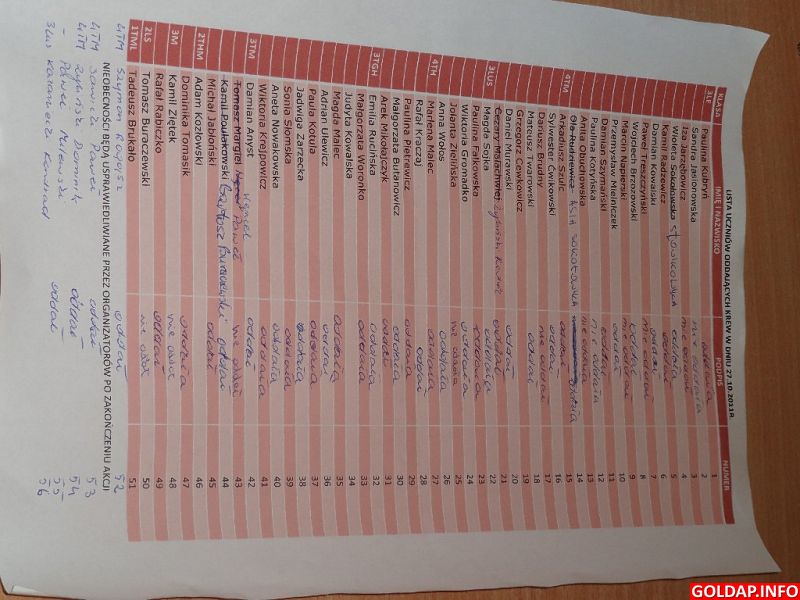 LISTA UCZNIÓW ODDAJĄCYCH KREW W DNIU 27.10.2011R.
KLASA IMIĘ I NAZWISKO PODPIS NUMER
3LF Paulina Kubryń oddała 1
Sandra Jasionowska nie oddała 2
Iza Jarzębowicz nie oddała 3
Sokołowska oddała 4
Kamil Radzewicz oddał 5
Damian Kowalski oddał 6
Paweł Leszczyński 7
Wojciech Brzozowski oddał 8
Marcin Napierski nie oddał 9
Przemysław Mielniczek oddał 10
Daniel Szymański oddał 11
Paulina Kotyńska nie oddała 12
Anita Obuchowska nie oddała 13
4TM Arkadiusz Szulc oddał 14
ASIA SOKOŁOWSKA oddała 15
Sylwester Ćwikowski oddał 16
Dariusz Brudny nie oddał 17
Mateusz Twarowski oddał 18
Grzegorz Chwiećko 19
Daniel Murowski oddał 20
3LUS Cezary oddał 21
Magda Sojka oddała 22
Paulina Falkowska oddała 23
Wiktoria Gromadko oddała 24
Jolanta Zielińska nie oddała 25
4TH Anna Wołos oddała 26
Marlena Malec oddała 27
Rafał Traczaj oddał 28
Paulina Pietrewicz oddała 29
Małgorzata Butanowicz oddała 30
3TGH Arek Mikołajczyk oddał 31
Emilia Rucińska oddała 32
Małgorzata Woronko oddała 33
Judyta Kowalska oddała 34
Magda Malec oddała 35
Adrian Ulewicz oddał 36
Paula Kotula oddała 37
Jadwiga Zarzecka oddała 38
Sonia Słomska oddała 39
Aneta Nowakowska oddała 40
Wiktoria Krejpowicz oddała 41
3TM Damian Anyst oddał 42
Tomasz Margiel Paweł nie oddał 43
Kamil Bartosz Buraczewski oddał 44
Michał Jabłoński oddał 45
2THM Adam Kozłowski 46
Dominika Tomasik oddała 47
3M Kamil Ziętek nie oddał 48
Rafał Rabiczko oddał 49
2LS Tomasz Buraczewski nie oddał 50
1TML Tadeusz Brukało 51
4TM Szymon oddał 52
NIEOBECNOŚCI BĘDĄ USPRAWIEDLIWIANE PRZEZ ORGANIZATORÓW PO ZAKOŃCZENIU AKCJI
4TM Paweł oddał 53
4TM Dominik oddał 54
- Paweł oddał 55
3LUS Konrad oddał 56
GOLDAP.INFO